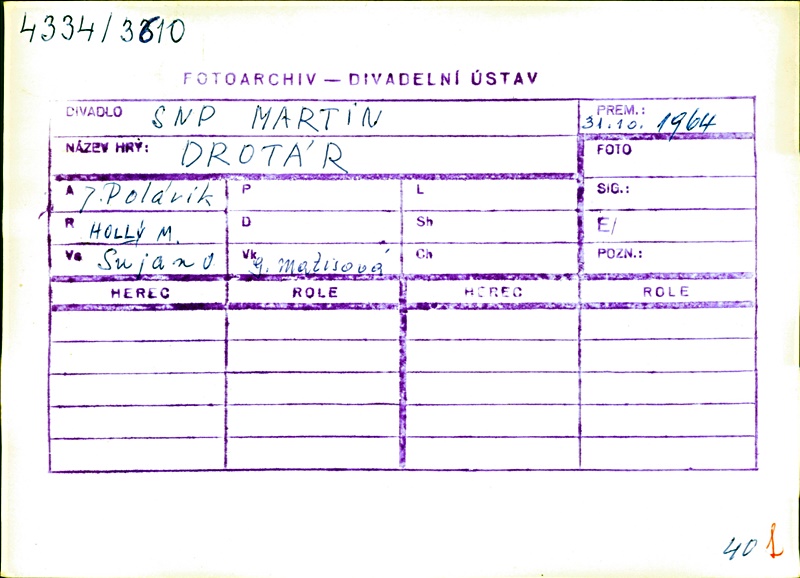 4334/3610
FOTOARCHIV — DIVADELNÍ ÚSTAV
DIVADLO SNP MARTIN
PREM.: 31.10. 1964
NÁZEV HRY: DROTÁR
FOTO
A J. Polárik P L SIG.:
R HOLLÝ M. D Sh E/
Vs Sujan O Vk G. Matisová Ch POZN.:
HEREC ROLE HEREC ROLE
40 1